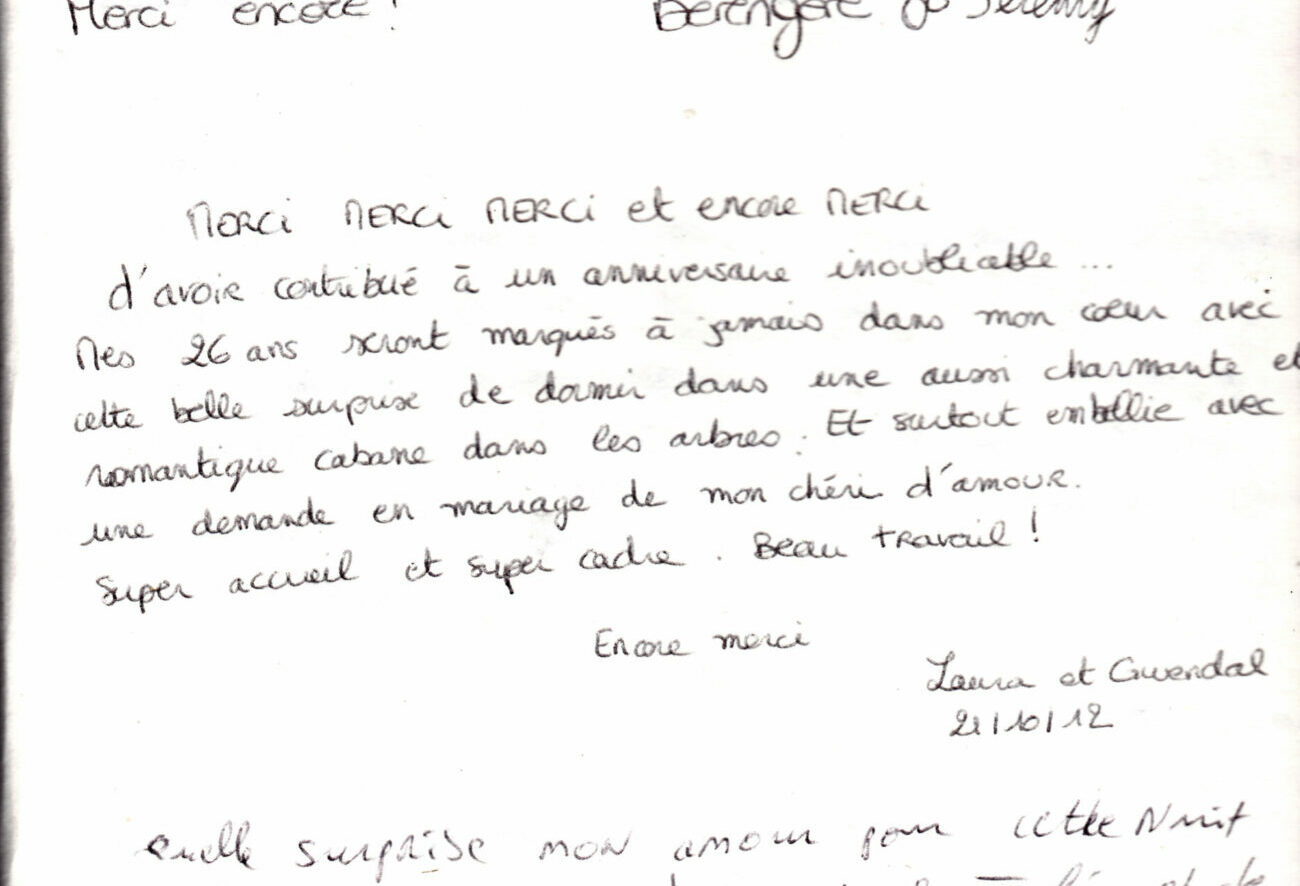 Merci encore ! Bérengère & Jérémy
MERCI MERCI MERCI et encore MERCI
d'avoir contribué à un anniversaire inoubliable ...
Mes 26 ans seront marqués à jamais dans mon cœur avec
cette belle surprise de dormir dans une aussi charmante et
romantique cabane dans les arbres. Et surtout embellie avec
une demande en mariage de mon chéri d'amour.
Super accueil et super cadre. Beau travail !
Encore merci
Laura et Gwendal
21/10/12
Quelle surprise mon amour pour cette Nuit